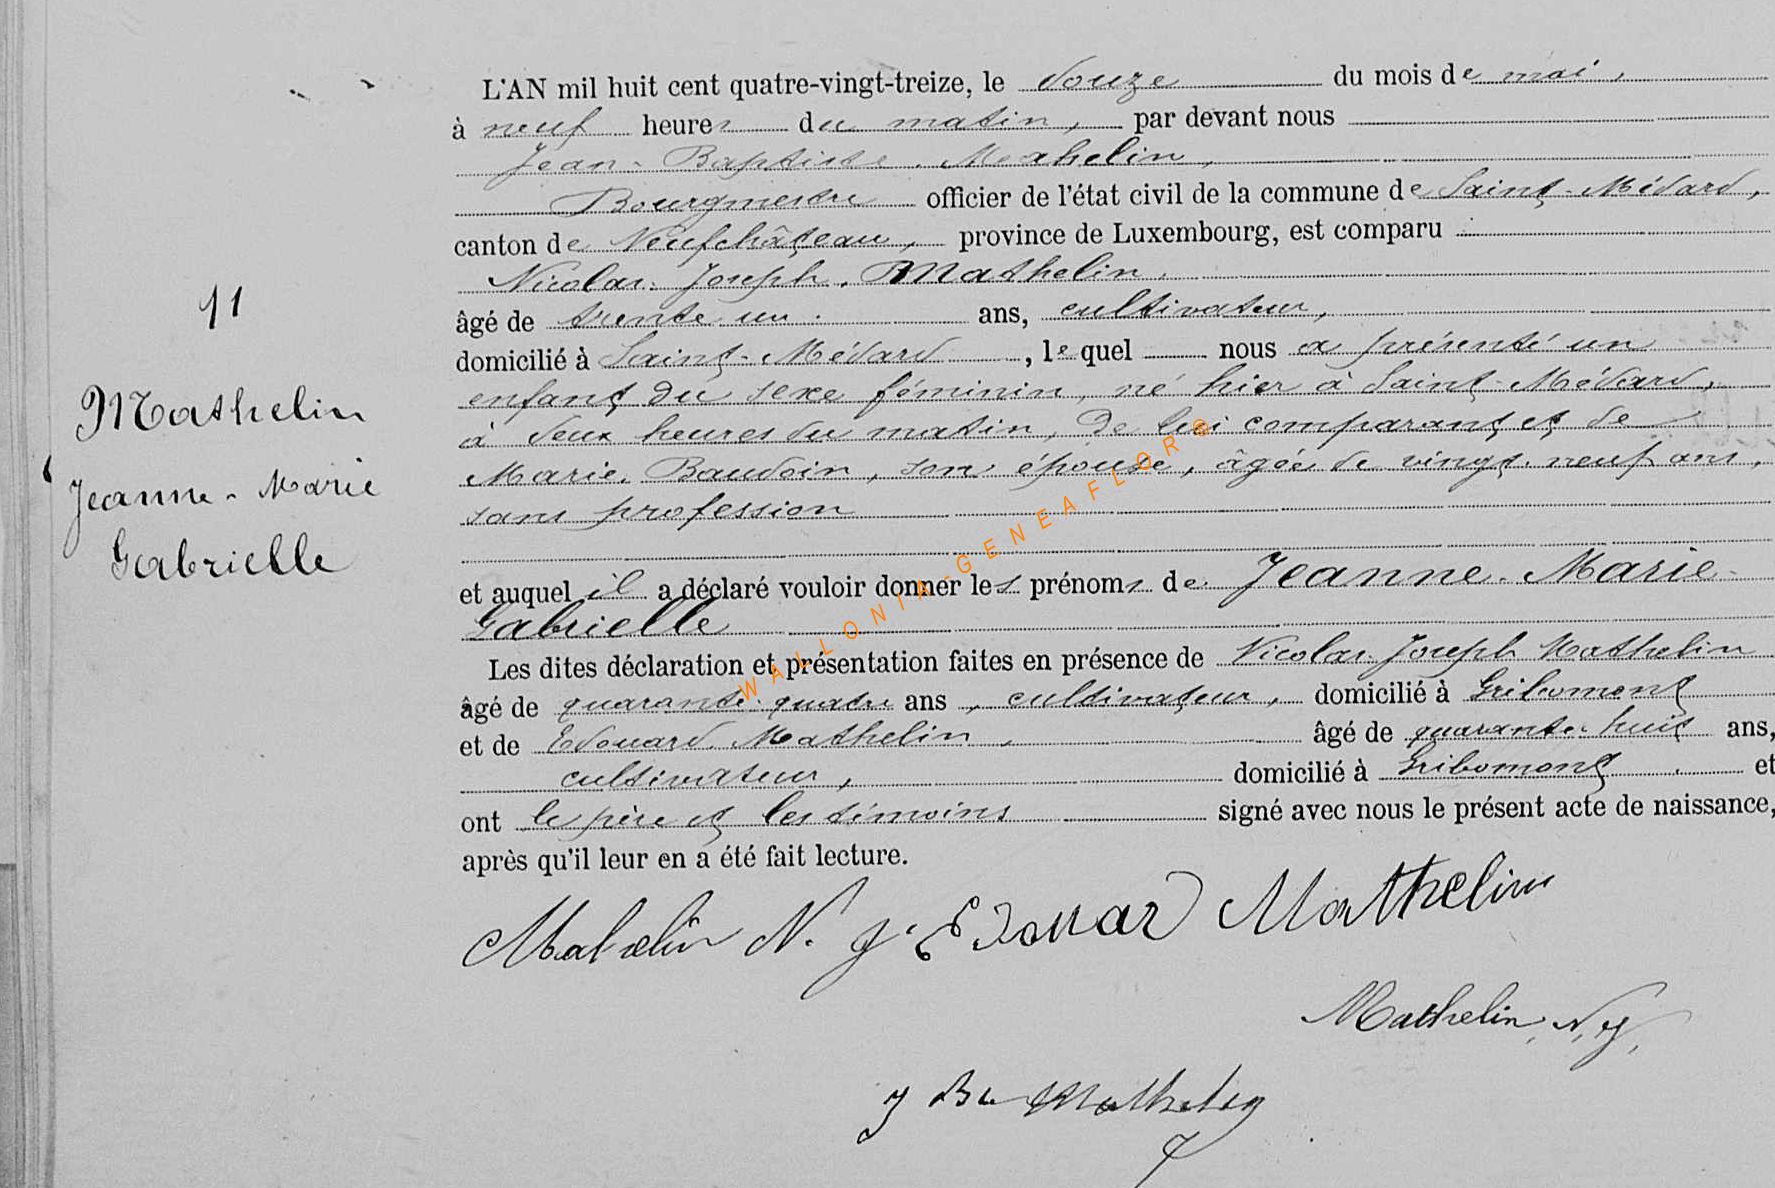 11
Mathelin
Jeanne-Marie
Gabrielle
L'AN mil huit cent quatre-vingt-treize, le douze du mois de mai,
à neuf heures du matin, par devant nous
Jean-Baptiste Mathelin,
Bourgmestre officier de l'état civil de la commune de Saint-Médard,
canton de Neufchâteau, province de Luxembourg, est comparu
Nicolas-Joseph Mathelin,
âgé de trente un ans, cultivateur,
domicilié à Saint-Médard, lequel nous a présenté un
enfant du sexe féminin, né hier à Saint-Médard,
à deux heures du matin, de lui comparant et de
Marie Baudoin, son épouse, âgée de vingt-neuf ans,
sans profession
et auquel il a déclaré vouloir donner les prénoms de Jeanne-Marie-
Gabrielle
Les dites déclaration et présentation faites en présence de Nicolas-Joseph Mathelin
âgé de quarante-quatre ans, cultivateur, domicilié à Gribomont
et de Edouard Mathelin, âgé de quarante-huit ans,
cultivateur, domicilié à Gribomont et
ont le père et les témoins signé avec nous le présent acte de naissance,
après qu'il leur en a été fait lecture.
Mathelin N. J. Edouard Mathelin
Mathelin, N, J,
J Bte Mathelin
WALLONIA-GENEAFLOR©